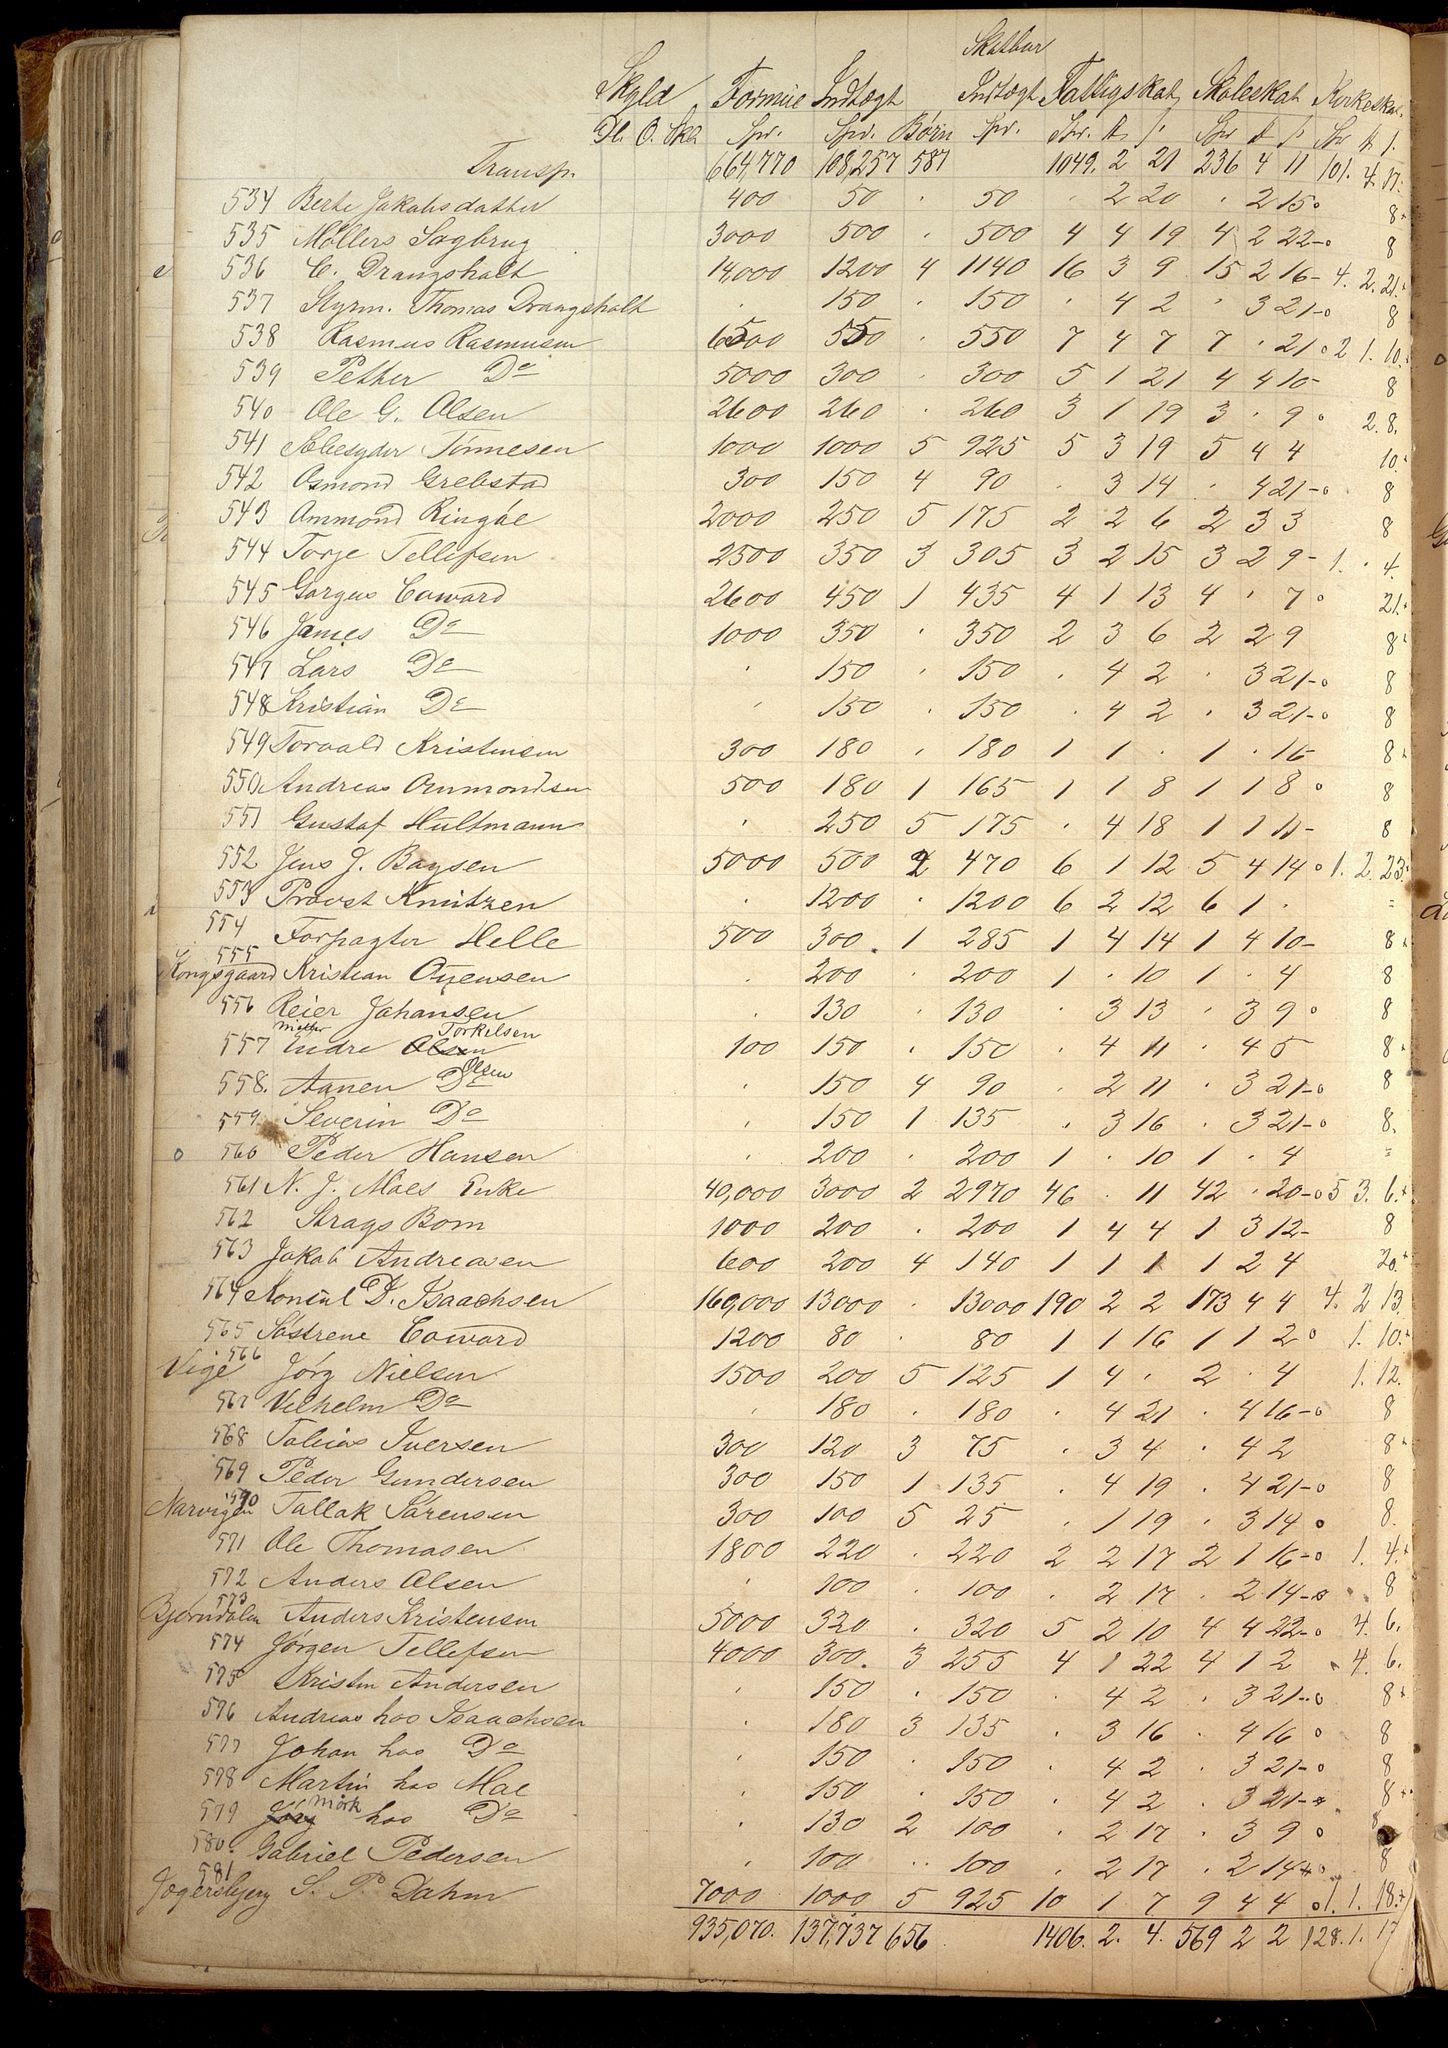 Skatbar
Skyld Formue Indtægt Indtægt Fattigskat Skoleskat Kirkeskat
Dl. O. Sk. Spr. Spr. Børn Spr. Spr. # ß. Spr # ß Spr # ß.
Transp. 664,770 108,257 587 1049. 2 21 236 4 11 101. 4. 17.
534 Berte Jakobsdatter 400 50 . 50 . 2 20 . 2 15 o 8 +
535 Møllers Sagbrug 3000 500 . 500 4 4 19 4 2 22 - o 8
536 C. Drangsholt 14,000 1200 4 1140 16 3 9 15 2 16 - 4. 2. 21. +
537 Styrm. Thomas Drangsholt . 150 . 150 . 4 2 . 3 21 - o 8
538 Rasmus Rasmusen 6500 550 . 550 7 4 7 7 . 21 o 2 1. 10. +
539 Petter Do 5000 300 . 300 5 1 21 4 4 10 - 8
540 Ole G. Olsen 2600 260 . 260 3 1 19 3 . 9 o 2. 8.
541 Sæbesyder Tønnesen 1000 1000 5 925 5 3 19 5 4 4 10. +
542 Osmond Grebstad 300 150 4 90 . 3 14 . 4 21 - o 8
543 Ommond Ringåe 2000 250 5 175 2 2 6 2 3 3 8
544 Torje Tellefsen 2500 350 3 305 3 2 15 3 2 9 - 1. . 4.
545 Gorgus Coward 2600 450 1 435 4 1 13 4 . 7 o 21. +
546 James Do 1000 350 . 350 2 3 6 2 2 9 8 +
547 Lars Do . 150 . 150 . 4 2 . 3 21 - o 8
548 Kristian Do . 150 . 150 . 4 2 . 3 21 - o 8
549 Torvald Kristensen 300 180 . 180 1 1 . 1 . 16 8 +
550 Andreas Ommondsen 500 180 1 165 1 1 8 1 1 8 o 8
551 Gustaf Hultmann . 250 5 175 . 4 18 1 1 11 - 8
552 Jens J. Boysen 5000 500 2 470 6 1 12 5 4 14 o 1. 2. 23. +
553 Provst Knutzen . 1200 . 1200 6 2 12 6 1 . =
554 Forpagter Helle 500 300 . 1 285 1 4 14 1 4 10 - 8 +
555
Kongsgaard Kristian Oyensen . 200 . 200 1 . 10 1 . 4 8
556 Reier Johansen . 130 . 130 . 3 13 . 3 9 o 8
Møller Torkelsen
557 Endre Olsen 100 150 . 150 . 4 11 . 4 5 8 +
Olsen
558. Aanen Do . 150 4 90 . 2 11 . 3 21 - o 8
559 Severin Do . 150 1 135 . 3 16 . 3 21 - o 8.
o 560 Peder Hansen . 200 . 200 1 . 10 1 . 4 =
561 N. J. Moes Enke 40,000 3000 2 2970 46 . 11 42 . 20 - o 5 3. 6. +
562 Strags Bom 1000 200 . 200 1 4 4 1 3 12 - 8
563 Jakob Andreasen 600 200 4 140 1 1 1 1 2 4 20. +
564 Konsul D. Isaachsen 160,000 13000 . 13000 190 2 2 173 4 4 4. 2 13.
565 Søstrene Coward 1200 80 . 80 1 1 16 1 1 2 o 1. 10. +
566
Vige Jørg Nielsen 1500 200 5 125 1 4 . 2 . 4 1. 12.
567 Vilhelm Do . 180 . 180 . 4 21 . 4 16 - o 8
568 Tobias Iversen 300 120 3 75 . 3 4 . 4 2 8 +
569 Peder Gundersen 300 150 1 135 . 4 19 . 4 21 - o 8
570
Narvigen Tallak Sørensen 300 100 5 25 . 1 19 . 3 14 o 8.
571 Ole Thomasen 1800 220 . 220 2 2 17 2 1 16 - o 1. 4. +
572 Anders Olsen . 100 . 100 . 2 17 . 2 14 - o 8
573
Bjørndalen Anders Kristensen 5000 320 . 320 5 2 10 4 4 22 - o 4. 6.
574 Jørgen Tellefsen 4000 300. 3 255 4 1 22 4 1 2 4. 6.
575 Kristen Andersen . 150 . 150 . 4 2 . 3 21 - o 8 +
576 Andreas hos Isaachsen . 180 3 135 . 3 16 . 4 16 o 8
577 Johan hos Do . 150 . 150 . 4 2 . 3 21 - o 8
578 Martin hos Moe . 150 . 150 . 4 2 . 3 21 - o 8 +
Mørk
579 Jørg hos Do . 130 2 100 . 2 17 . 3 9 o 8
580. Gabriel Pedersen . 100 . 100 . 2 17 . 2 14 + o 8
581
Jegersbjerg S. P. Dahm 7000 1000 5 925 10 1 7 9 4 4 o 1. 1. 18. +
935,070. 137,737 656 1406. 2. 4. 569 2 2 128. 1. 17